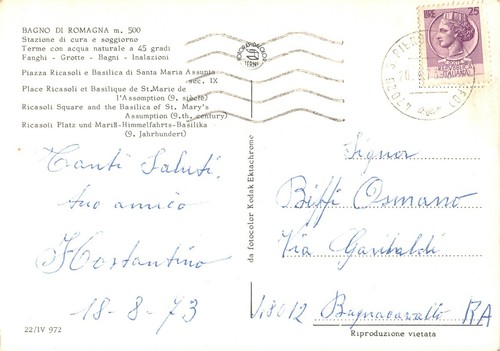 BAGNO DI ROMAGNA m. 500
Stazione di cura e soggiorno
Terme con acqua naturale a 45 gradi
Fanghi - Grotte - Bagni - Inalazioni
Piazza Ricasoli e Basilica di Santa Maria Assunta
sec. IX
Place Ricasoli et Basilique de St.Marie de
l'Assomption (9. siècle)
Ricasoli Square and the Basilica of St. Mary's
Assumption (9.th. century)
Ricasoli Platz und Mariß-Himmelfahrts-Basilika
(9. Jahrhundert)
LIRE 25
REPUBBLICA
ITALIANA
47025
Tanti Saluti.
tuo amico
Kostantino
18-8-73
22/IV 972
da fotocolor Kodak Ektachrome
Signor
Biffi Osmano
Via Garibaldi
48012 Bagnacavallo RA
Riproduzione vietata